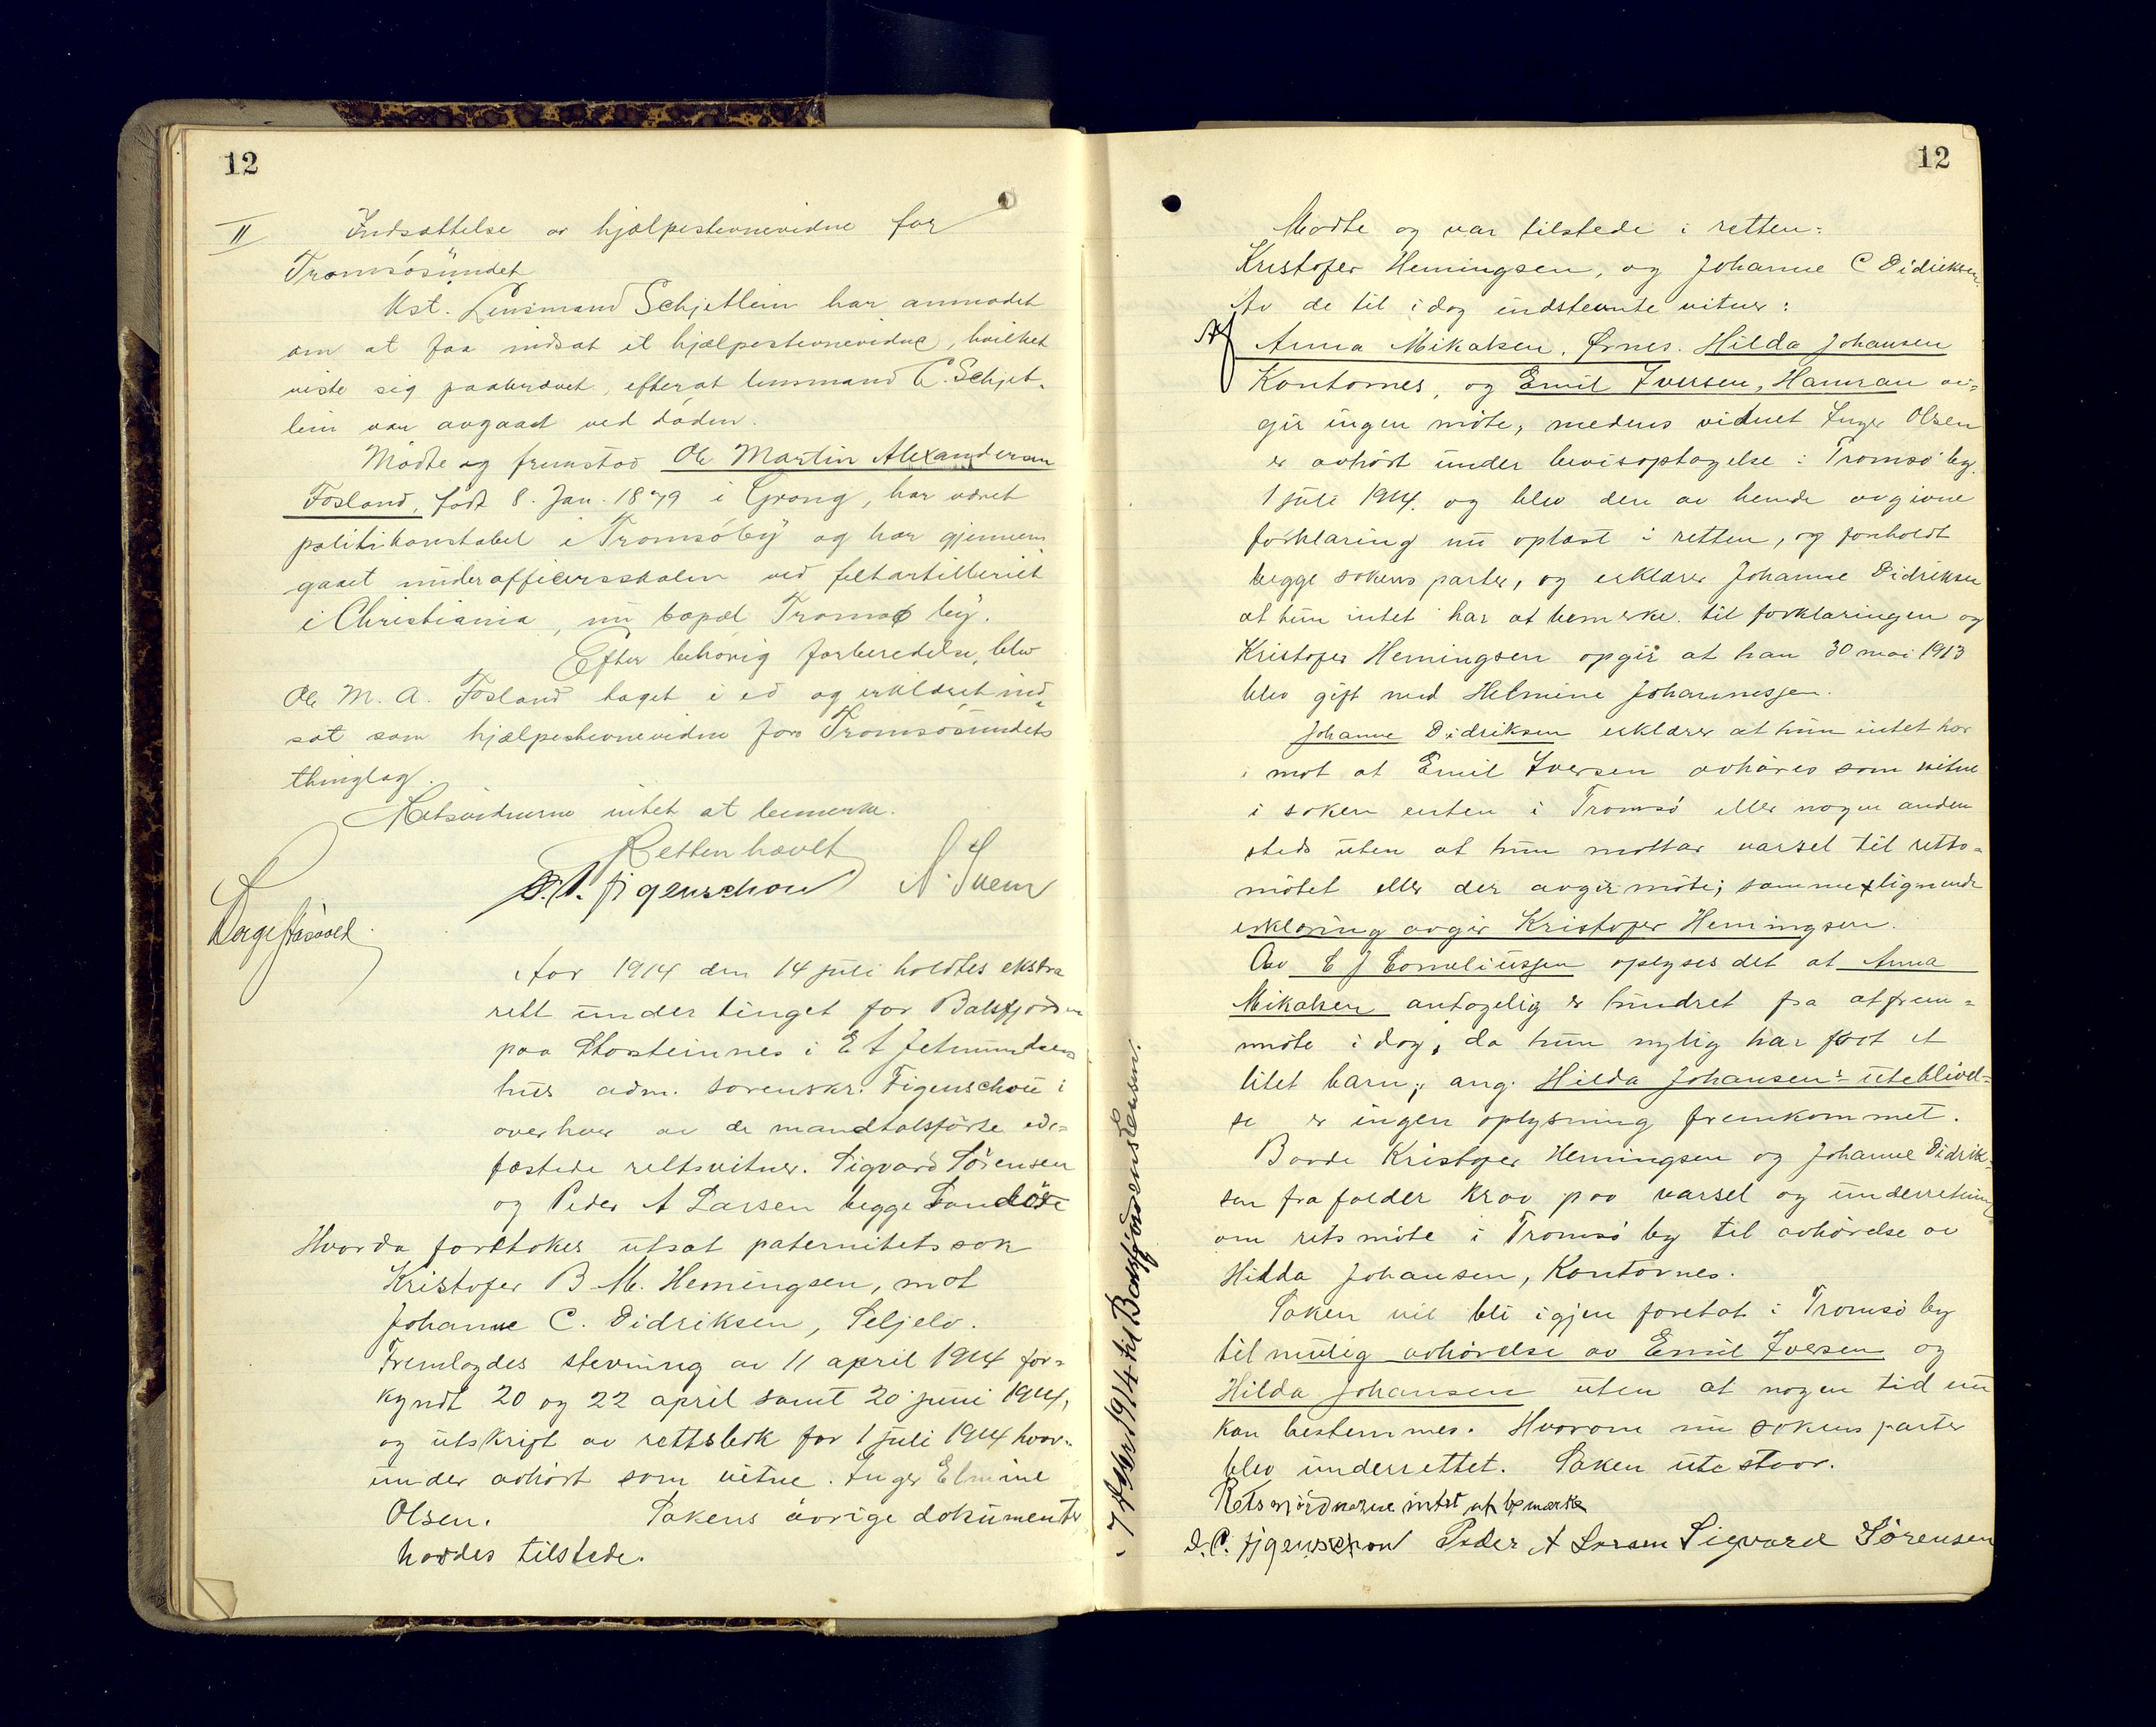 12
II Indsættelse av hjælpestevnevidne for
Tromsøsundet
Kst. Lensmand Schjetlein har anmodet
om at faa indsat et hjælpestevnevidne, hvilket
viste sig paakrævet, efterat lensmand C. Schjet-
lein var avgaaet ved døden.
Mødte og fremstod Ole Martin Alexandersen
Fosland, født 8. Jan. 1879 i Grong, har været
politikonstabel i Tromsø by og har gjennem
gaaet underofficersskolen ved feltartilleriet
i Christiania, nu bopæl Tromsø by.
Efter behørig forberedelse, blev
Ole M. A. Fosland taget i ed og erklæret ind-
sat som hjælpestevnevidne for Tromsøsundets
thinglag.
Retsvidnerne intet at bemerke.
Retten hævet
Figenschou
Aar 1914 den 14 juli holdtes ekstra
rett under tinget for Balsfjorden
paa Storsteinnes i E A Jetmundsens
hus adm. sorenskr. Figenschou i
overhvær av de mandtalsførte ede-
fæstede rettsvitner. Sigvard Sørensen
og Peder A Larsen begge
Hvorda foretokes utsat paternitetssak
Kristofer B M. Hemingsen, mot
Johanne C. Didriksen, Seljelv.
Fremlagdes stevning av 11 april 1914 for-
kyndt 20 og 22 april samt 20 juni 1914,
og utskrift av rettsbok for 1 juli 1914 hvor-
under avhørt som vitne. Inger Elmine
Olsen. Sakens øvrige dokumenter
havdes tilstede.
12
Mødte og var tilstede i retten:
Kristofer Hemingsen, og Johanne C Didriksen.
Av de til idag indstevnte vitner:
Anna Mikalsen, Ørnes. Hilda Johansen
Kantornes, og Emil Iversen, Hamran av-
gir ingen møte, medens vidnet Inger Olsen
er avhørt under bevisoptagelse i Tromsø by.
1 juli 1914. og blev den av hende avgivne
forklaring nu oplæst i retten, og forholdt
begge sakens parter, og erklærer Johanne Didriksen
at hun intet har at bemerke til forklaringen og
Kristofer Hemingsen opgir at han 30 mai 1913
blev gift med Helmine Johannessen.
Johanne Didriksen erklærer at hun intet har
i mot at Emil Iversen avhøres som vitne
i saken enten i Tromsø eller nogen anden
steds uten at hun mottar varsel til retts-
møtet eller der avgir møte; samme lignende
erklæring avgir Kristofer Hemingsen.
Av E J Corneliussen oplyses det at Anna
Mikalsen antagelig er hindret fra at frem-
møte i dag, da hun nylig har fået et
litet barn; ang. Hilda Johansen's uteblivel-
se er ingen oplysning fremkommet.
Baade Kristofer Hemingsen og Johanne Didrik-
sen frafalder krav paa varsel og underretning
om retsmøte i Tromsø by til avhørelse av
Hilda Johansen, Kantornes.
Saken vil bli igjen foretat i Tromsø by
til mulig avhørelse av Emil Iversen og
Hilda Johansen uten at nogen tid nu
kan bestemmes. Hvorom nu sakens parter
blev underrettet. Saken utestaar.
Retsvidnerne intet at bemærke
Figenschou Peder A Larsen Sigvard Sørensen
1914 til Balsfjordens lensm.